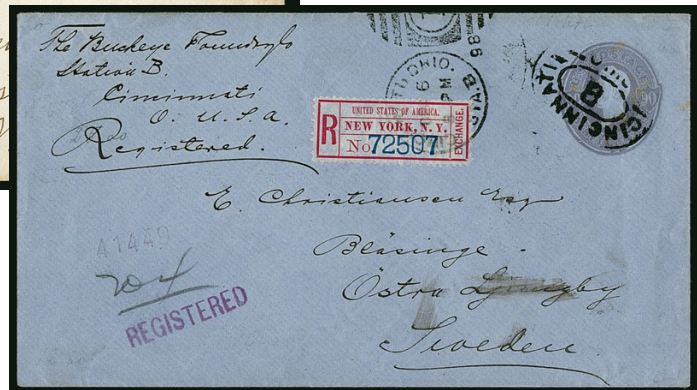 The Buckeye Foundry Co
Station B.
Cincinnati
O. U.S.A.
Registered.
86
OHIO.
STA.B
6
PM
UNITED STATES OF AMERICA.
R NEW YORK, N.Y. EXCHANGE.
No 72507
CINCINNATI
B
90
E. Christiansen Esq
Bläsinge
Östra Ljungby
Sweden.
41449
REGISTERED